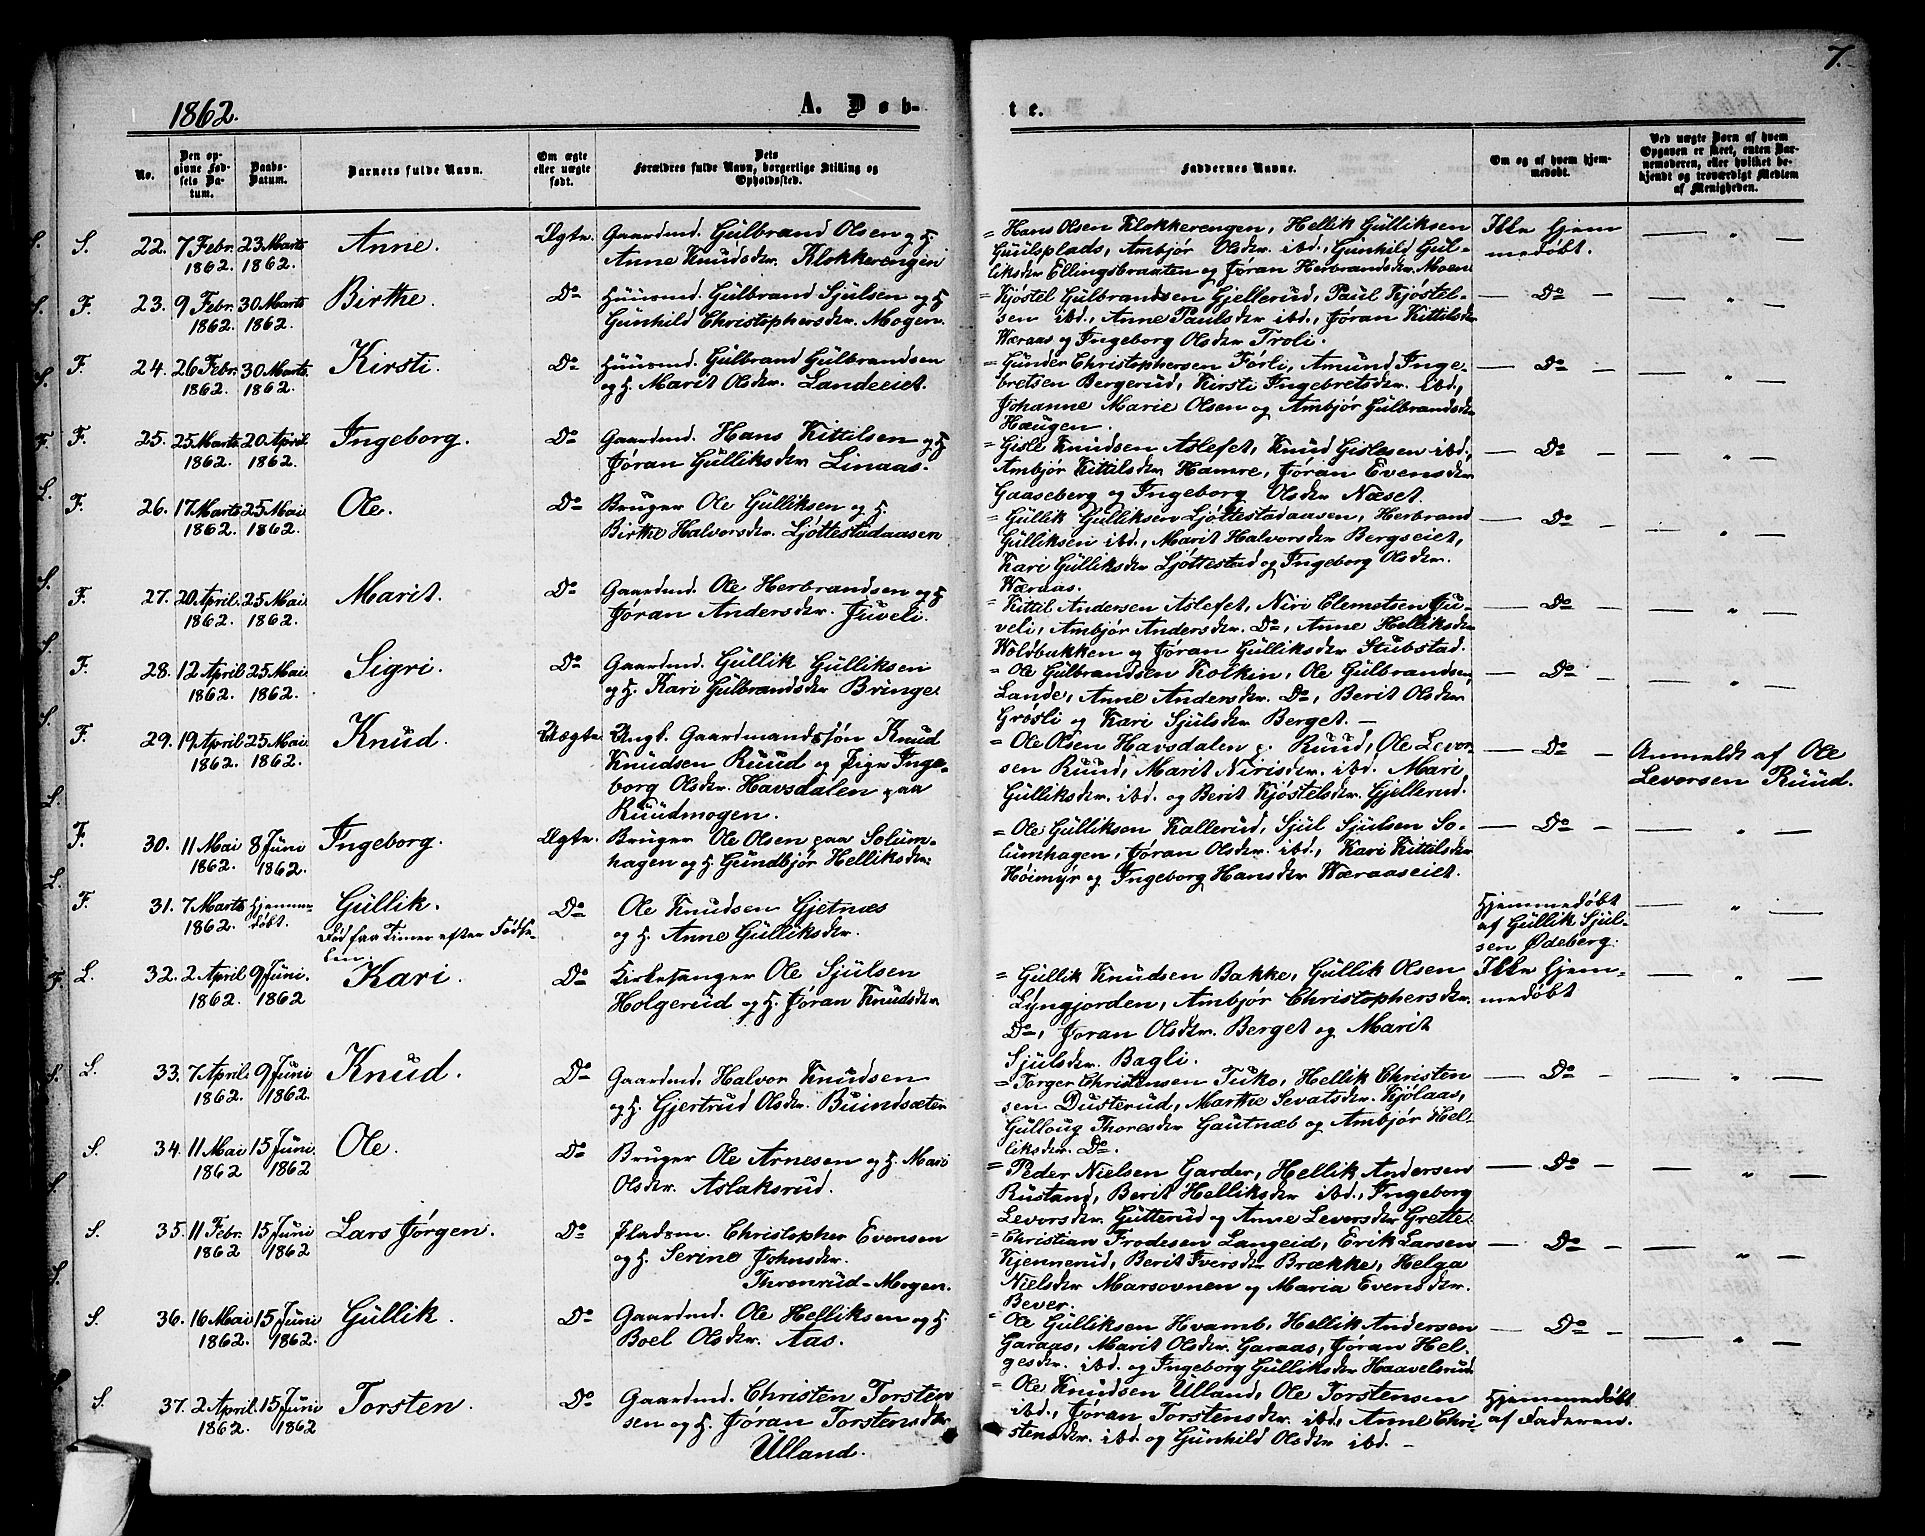 7.
1862.
A. Døb-
te.
No.
Den opgivne Fødsels Datum.
Daabs-Datum.
Barnets fulde Navn.
Om ægte eller uægte født.
Dets Forældres fulde Navn, borgerlige Stilling og Opholdssted.
Faddernes Navne.
Om og af hvem hjemmedøbt.
Ved uægte Børn af hvem Opgaven er skeet, enten Barnemoderen, eller hvilket bekjendt og troværdigt Medlem af Menigheden.
S. 22. 7 Febr. 1862. 23 Marts 1862. Anne. Ægte.
Gaardmd. Gülbrand Olsen og H.
Anne Knüdsdr. Klokkerengin
= Hans Olsen Klokkerengen, Hellik Gülliksen
Guulsplads, Ambjør Olsdr. ibd., Günhild Gül-
liksdr Ellingsbraaten og Jøran Herbrandsdr. Moen
Ikke hjem
medøbt.
F. 23. 9 Febr. 1862. 30 Marts 1862. Birthe. Do
Hüüsmd. Gülbrand Sjülsen og H
Günhild Christophersdr. Mogen.
= Kjøstel Gülbrandsen Gjellerud, Paul Kjøstel-
sen ibd., Anne Paulsdr ibd., Jøran Kittilsdr
Wæraas og Ingeborg Olsdr Troli.
— Do —
F. 24. 26 Febr. 1862. 30 Marts. 1862. Kirsti. Do
Hüüsmd. Gülbrand Gülbrandsen
og H. Marit Olsdr. Landeeiet.
= Günder Christophersen Førli, Amund Inge-
bretsen Bergerud, Kirsti Ingebretsdr. ibd.,
Johanne Marie Olsen og Ambjør Gülbrandsdr
Haugen.
— Do —
F. 25. 25 Marts 1862. 20 April. 1862. Ingeborg. Do
Gaardmd. Hans Kittilsen og H
Jøran Gülliksdr Linaas.
= Gisle Knüdsen Aslefet, Knüd Gislesen ibd.,
Ambjør Kittilsdr Hamre, Jøran Evensdr
Gaaseberg og Ingeborg Olsdr Næset.
— Do —
F. 26. 17 Marts 1862. 25 Mai 1862. Ole. Do
Bruger Ole Gülliksen og H.
Birthe Halvorsdr. Ljøttestadaasen
= Güllik Gülliksen Ljøttestadaasen, Herbrand
Gülliksen ibd., Marit Halvorsdr Bergseiet,
Kari Gülliksdr Ljøttestad og Ingeborg Olsdr.
Wæraas.
— Do —
F. 27. 20 April. 1862. 25 Mai 1862. Marit. Do
Gaardmd. Ole Herbrandsen og H
Jøran Andersdr. Juveli.
= Kittil Andersen Aslefet, Niri Clemetsen Ju-
veli, Ambjør Andersdr. Do, Anne Helliksdr
Woldbakken og Jøran Gülliksdr Stubstad.
— Do —
F. 28. 12 April 1862. 25 Mai 1862. Sigri. Do
Gaardmd. Güllik Gülliksen
og H. Kari Gülbrandsdr Bringe
= Ole Gülbrandsen Kolkin, Ole Gülbrandsen
Lande, Anne Andersdr. Do, Berit Olsdr
Grøsli og Kari Sjülsdr Berget. —
— Do —
F. 29. 19 April 1862. 25 Mai. 1862. Knüd. Uægte.
Ungk. Gaardmandssøn Knüd
Knüdsen Rüüd og Pige Inge-
borg Olsdr. Havsdalen paa
Rüüdmogen.
= Ole Olsen Havsdalen p. Rüüd, Ole Levor-
sen Rüüd, Marit Nirisdr. ibd. Mari
Gülliksdr. ibd. og Berit Kjøstelsdr. Gjellerud.
— Do —
Anmeldt af Ole
Levorsen Rüüd.
F. 30. 11 Mai 1862. 8 Juni 1862. Ingeborg. Ægte.
Bruger Ole Olsen paa Solüm-
hagen og H Gündbjør Helliksdr:
= Ole Gülliksen Kallerud, Sjül Sjülsen So-
lumhagen, Jøran Olsdr. ibd., Kari Kittilsdr
Høimyr og Ingeborg Hansdr Wæraaseiet.
— Do —
F. 31. 7 Marts 1862. Hjemme-døbt. Güllik. Do
Død faa Timer efter Fødse-
len.
Ole Knüdsen Gjetnæs
og H. Anne Gülliksdr.
Hjemmedøbt
af Güllik Sjül-
sen Ødeberg.
L. 32. 2 April 1862. 9 Juni. 1862 Kari. Do
Kirkesanger Ole Sjülsen
Holgerüd og H. Jøran Knüdsdr
= Güllik Knüdsen Bakke, Güllik Olsen
Lyngjorden, Ambjør Christophersdr.
Do, Jøran Olsdr. Berget og Marit
Sjülsdr. Bagli.
Ikke hjem-
medøbt
L. 33. 7 April. 1862. 9 Juni 1862. Knüd. Do
Gaardmd. Halvor Knüdsen
og H. Gjertrüd Olsdr. Buindsæter
= Torger Christensen Tuko, Hellik Christen
sen Dusterud, Marthe Sevatsdr. Kjølaas,
Güllaug Thoresdr Gautnæb og Ambjør Hel-
liksdr. Do.
— Do —
S. 34. 11 Mai 1862 15 Juni. 1862 Ole. Do
Bruger Ole Arnesen og H. Mari
Olsdr. Aslaksrud.
= Peder Nielsen Garder, Hellik Andersen
Rustand, Berit Helliksdr ibd., Ingeborg
Levorsdr. Gütterud og Anne Levorsdr Grette.
— Do —
S. 35. 11 Febr. 1862 15 Juni 1862 Lars Jørgen. Do
Pladsm. Christopher Evensen
og H. Serine Johnsdr.
Thronrud-Mogen.
= Christian Frodesen Langeid, Erik Larsen
Kjennerud, Berit Iversdr Brække, Helga
Nielsdr Marsovnen og Maria Evensdr.
Bever.
— Do —
S. 36. 16 Mai 1862. 15 Juni 1862. Güllik. Do
Gaardmd. Ole Helliksen og H.
Boel Olsdr. Aas.
= Ole Gülliksen Hvamb, Hellik Andersen
Garaas, Marit Olsdr. Garaas, Jøran Hel-
gesdr. ibd. og Ingeborg Gülliksdr Haavelsrud.
— Do —
S. 37. 2 April. 1862. 15 Juni 1862 Torsten. Do
Gaardmd. Christen Torsten
sen og H. Jøran Torstensdr
Ülland.
= Ole Knüdsen Ülland, Ole Torstensen
ibd., Jøran Torstensdr. ibd., Anne Chri-
stensdr. ibd. og Günhild Olsdr ibd. —
Hjemmedøbt
af Faderen.